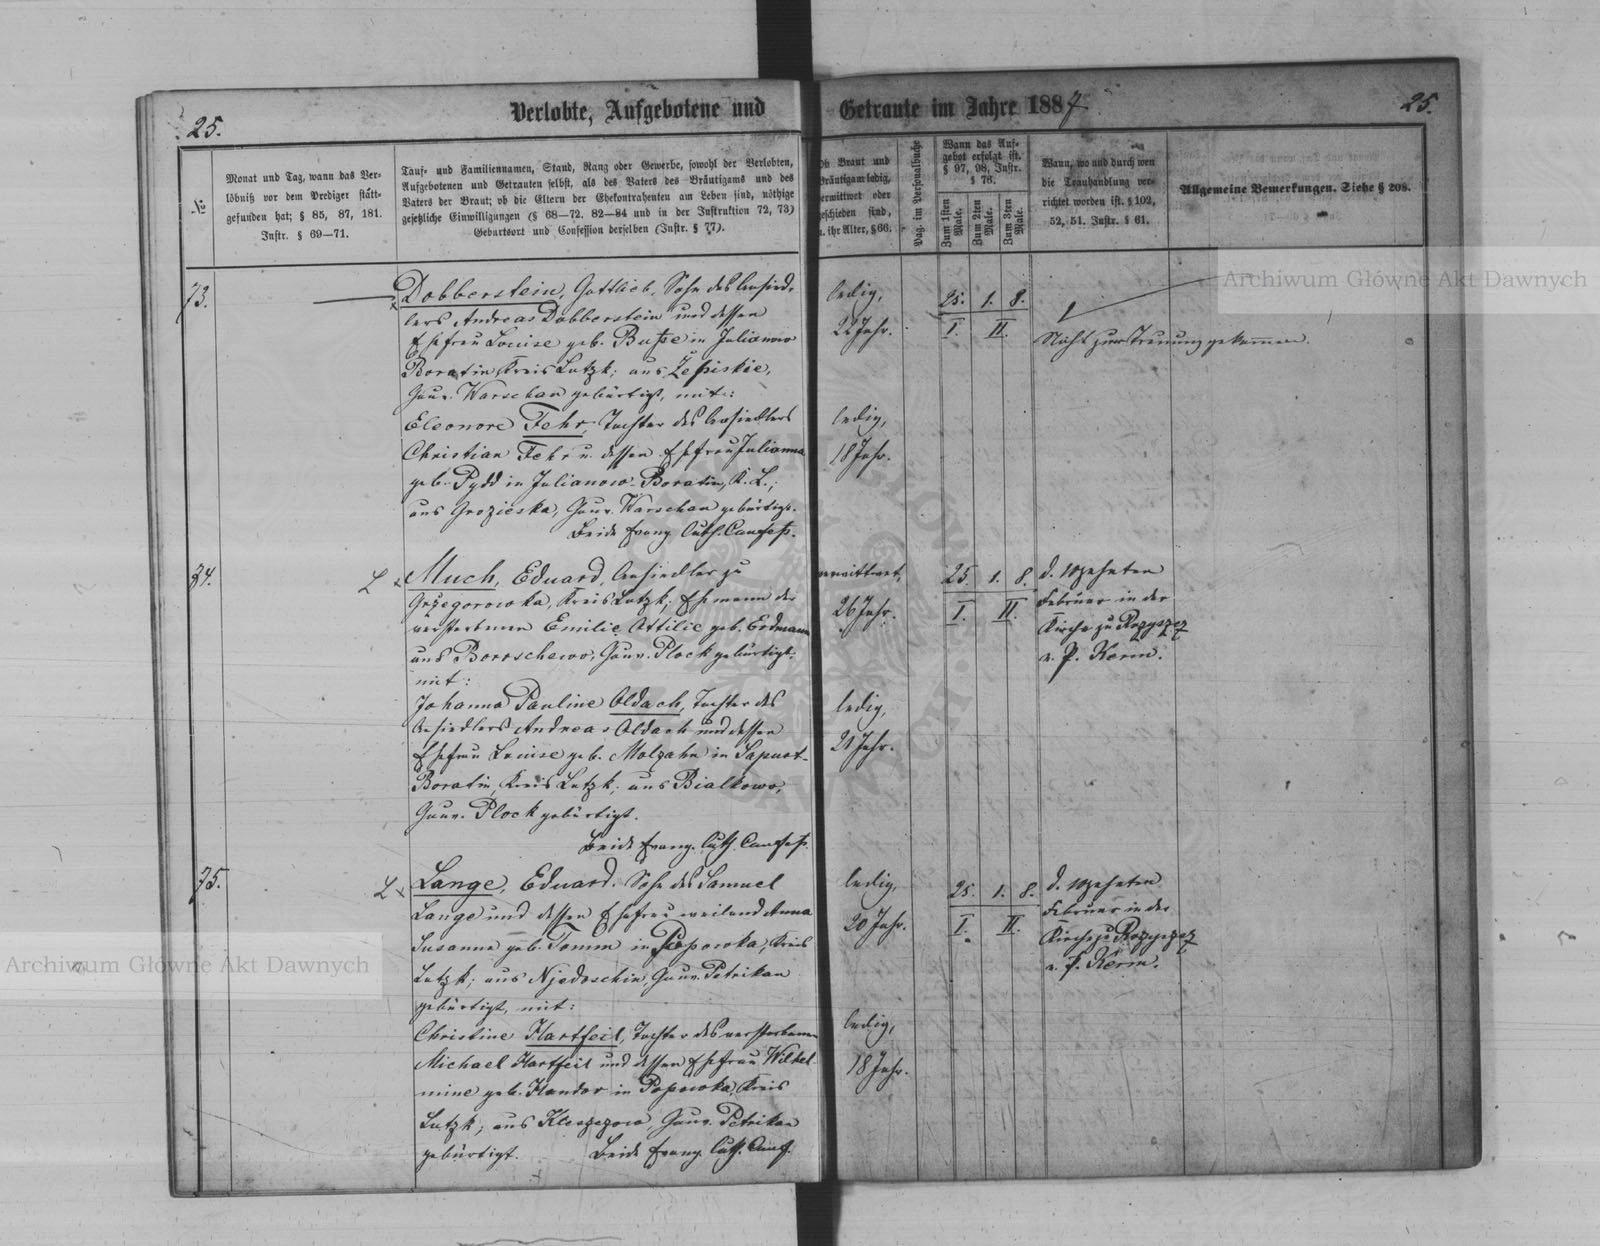 25.
Verlobte, Aufgebotene und
Getraute im Jahre 1887
25.
№
Monat und Tag, wann das Ver-
löbniß vor dem Prediger statt-
gefunden hat; § 85, 87, 181.
Instr. § 69—71.
Tauf- und Familiennamen, Stand, Rang oder Gewerbe, sowohl der Verlobten,
Aufgebotenen und Getrauten selbst, als des Vaters des Bräutigams und des
Vaters der Braut; ob die Eltern der Ehekontrahenten am Leben sind, nöthige
gesetzliche Einwilligungen (§ 68—72. 82—84 und in der Instruktion 72, 73)
Geburtsort und Confession derselben (Instr. § 77).
Ob Braut und
Bräutigam ledig,
verwittwet oder
geschieden sind,
u. ihr Alter, § 66.
Pag. im Personalbuche
Wann das Auf-
gebot erfolgt ist.
§ 97, 98, Instr.
§ 76.
Zum 1sten Male.
Zum 2ten Male.
Zum 3ten Male.
Wann, wo und durch wen
die Trauhandlung ver-
richtet worden ist. § 102,
52, 51. Instr. § 61.
Allgemeine Bemerkungen. Siehe § 208.
73.
Dobberstein, Gottlieb, Sohn des Ansied-
lers Andreas Dobberstein und dessen
Ehefrau Louise geb. Buße in Julianow
Boratin Kreis Lutzk; aus
Gouv. Warschau gebürtigt, mit:
Eleonore Fehr, Tochter des Ansiedlers
Christian Fehr u. dessen Ehefrau Julianna
geb. Pydd in Julianow-Boratin, K. L.;
aus Grozieska, Gouv. Warschau gebürtigt.
Beide Evang. Luth. Confess.
ledig,
22 Jahr.
ledig,
18 Jahr.
25. 1. 8.
I. II.
Nicht zur Trauung gekommen.
74.
Much, Eduard, Ansiedler zu
Grzegorowka, Kreis Lutzk; Ehemann der
verstorbenen Emilie, Ottilie geb. Erdmann
aus Borrschewo, Gouv. Plock gebürtigt;
mit:
Johanna Pauline Oldach, Tochter des
Ansiedlers Andreas Oldach und dessen
Ehefrau Louise geb. Malzahn in Sapust-
Boratin, Kreis Lutzk; aus Bialkowo,
Gouv. Plock gebürtigt.
Beide Evang. Luth. Confess.
verwittwet,
26 Jahr.
ledig,
21 Jahr.
25. 1. 8.
I. II.
d. 10zehnten
Februar in der
Kirche zu Rozyszcz
v. P. Kerm.
75.
Lange, Eduard, Sohn des Samuel
Lange und dessen Ehefrau weiland Anna
Susanna geb. Tomm in Popowka, Kreis
Lutzk; aus Njedoschin, Gouv. Petrikau
gebürtigt, mit:
Christine Hartfeil, Tochter des verstorbenen
Michael Hartfeil und dessen Ehefrau Wilhel-
mine geb. Handor in Popowka, Kreis
Lutzk; aus Kleszczow, Gouv. Petrikau
gebürtigt. Beide Evang. Luth. Conf.
ledig,
20 Jahr.
ledig,
18 Jahr.
25. 1. 8.
I. II.
d. 10zehnten
Februar in der
Kirche zu Rozyszcz
v. P. Kerm.
Archiwum Główne Akt Dawnych
Archiwum Główne Akt Dawnych